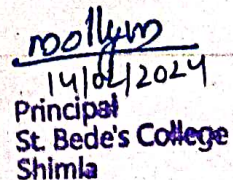 14/02/2024
Principal
St. Bede's College
Shimla